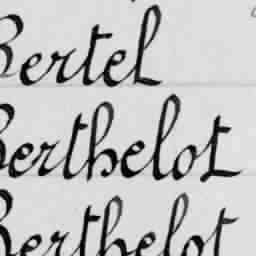 Bertel
Berthelot
Berthelot